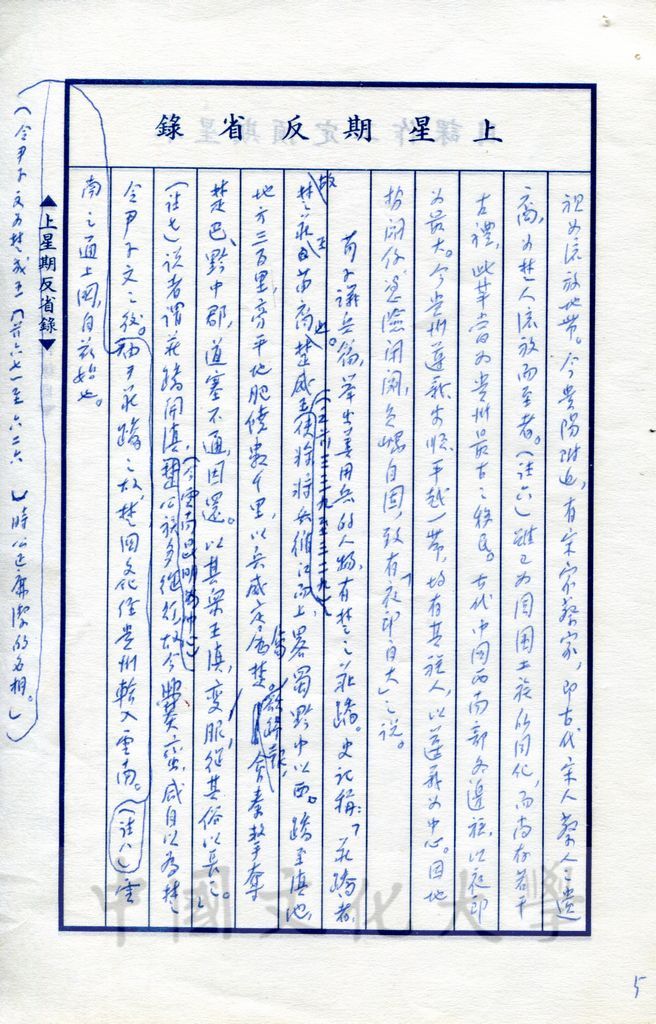 上星期反省錄
祖為流放地帶。今貴陽附近，有宋家蔡家，即古代宋人蔡人之遺
裔，為楚人流放而至者。（註六）雖已為周圍土族所同化，而尚存若干
古禮，此輩當為貴州最古之移民。古代中國西南部各邊族，以夜郎
為最大。今貴州遵義安順平越一帶，均有其種人，以遵義為中心。因地
勢閉塞，憑險閉關，負嵎自固，致有「夜郎自大」之說。
荀子議兵篇，舉出善用兵的人物，有楚之莊蹻。史記稱：「莊蹻者，
故楚莊王苗裔也。楚威王（公元前三三九至三二九）使將將兵循江而上，略蜀黔中以西。蹻至滇池，
地方三百里，旁平地肥饒數千里，以兵威定屬楚。欲歸報，會秦擊奪
楚巴、黔中郡，道塞不通，因還。以其眾王滇，變服，從其俗以長之。」
（註七）說者謂莊蹻開滇，（今雲南昆明為中心）楚公族多從往，故今爨蠻，咸自以為楚
令尹子文之後。以莊蹻之故，楚國文化經貴州輸入雲南。（註八）雲
南之通上國，自茲始也。
▲上星期反省錄▼
（令尹子文為楚成王（前六七一至六二六）時公正廉潔的名相。）
中國文化大學
5